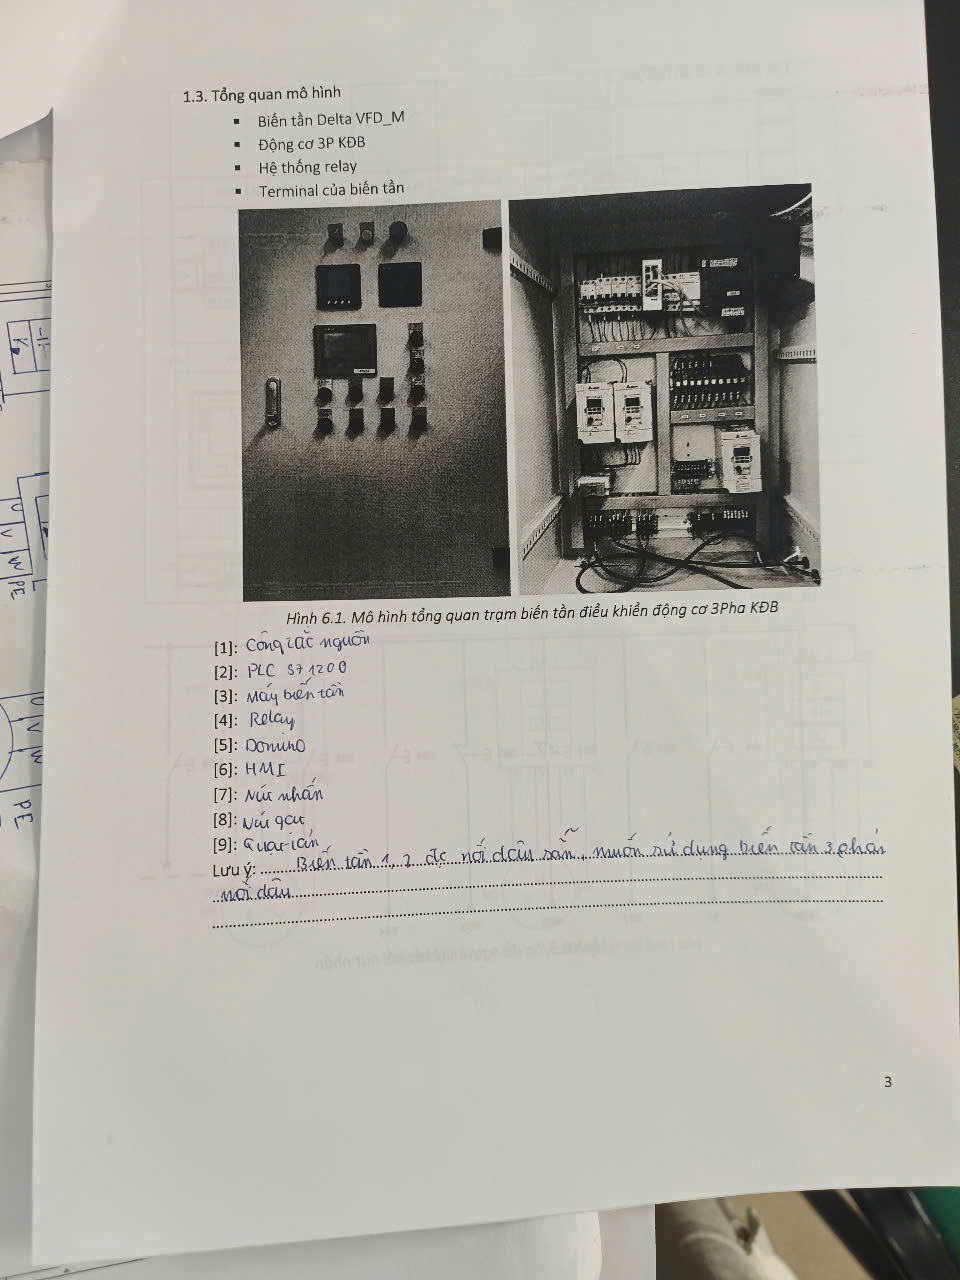 1.3. Tổng quan mô hình
▪ Biến tần Delta VFD_M
▪ Động cơ 3P KĐB
▪ Hệ thống relay
▪ Terminal của biến tần
Hình 6.1. Mô hình tổng quan trạm biến tần điều khiển động cơ 3Pha KĐB
[1]: Công tắc nguồn
[2]: PLC S7 1200
[3]: Máy biến tần
[4]: Relay
[5]: Domino
[6]: HMI
[7]: Nút nhấn
[8]: Nút gạt
[9]: Quạt
Lưu ý: Biến tần 1, 2 đc nối dây sẵn, muốn sử dụng biến tần 3 phải
nối dây
3
U V W PE
U V W
PE